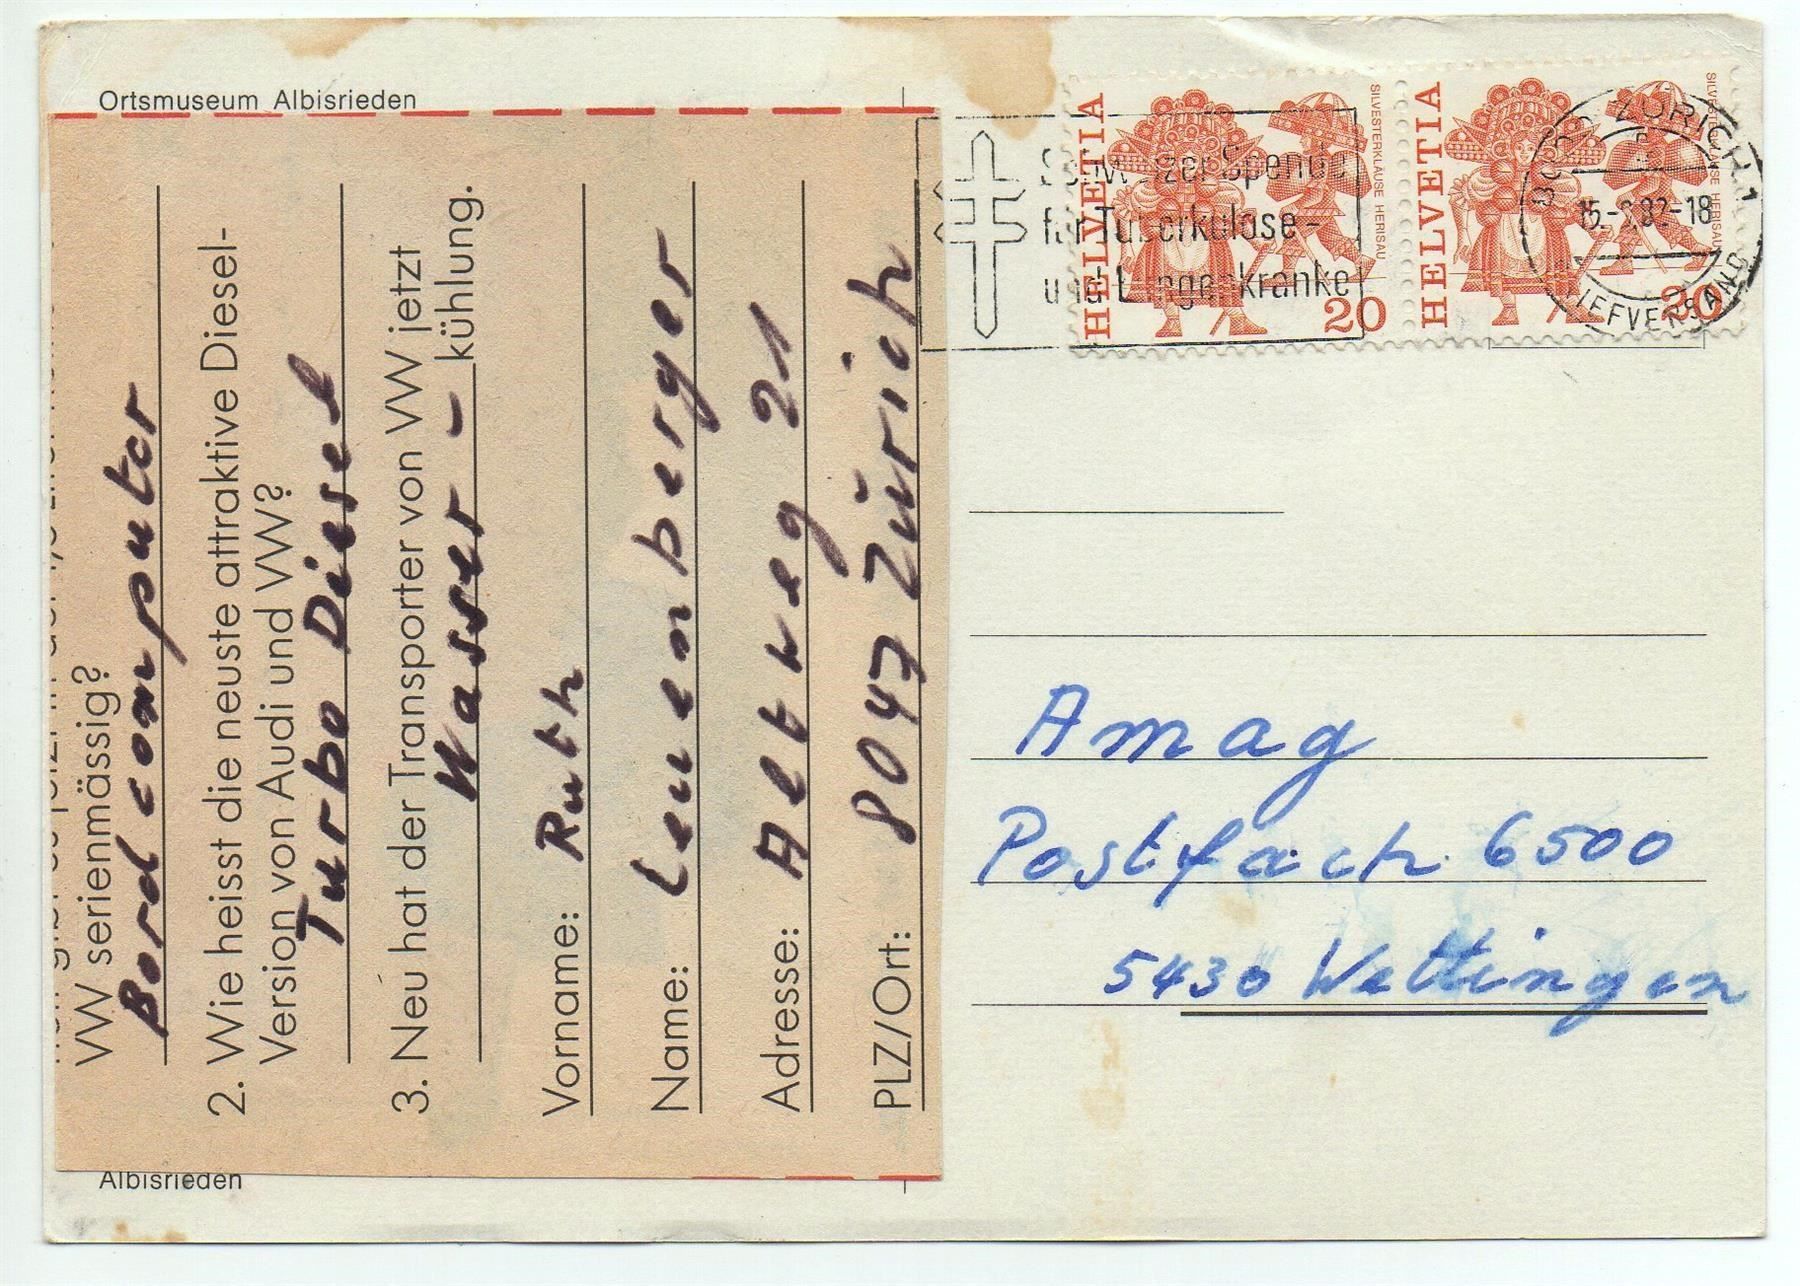 Ortsmuseum Albisrieden
VW serienmässig?
Bordcomputer
2. Wie heisst die neuste attraktive Diesel-
Version von Audi und VW?
Turbo Diesel
3. Neu hat der Transporter von VW jetzt
Wasser - kühlung.
Vorname: Ruth
Name: Leuenberger
Adresse: Altweg 21
PLZ/Ort: 8047 Zürich
Albisrieden
Schweizer Spende
für Tuberkulose-
und Lungenkranke
HELVETIA
SILVESTERKLÄUSE HERISAU
20
HELVETIA
SILVESTERKLÄUSE HERISAU
20
ZÜRICH 1
82-18
BRIEFVERSAND
Amag
Postfach 6500
5430 Wettingen